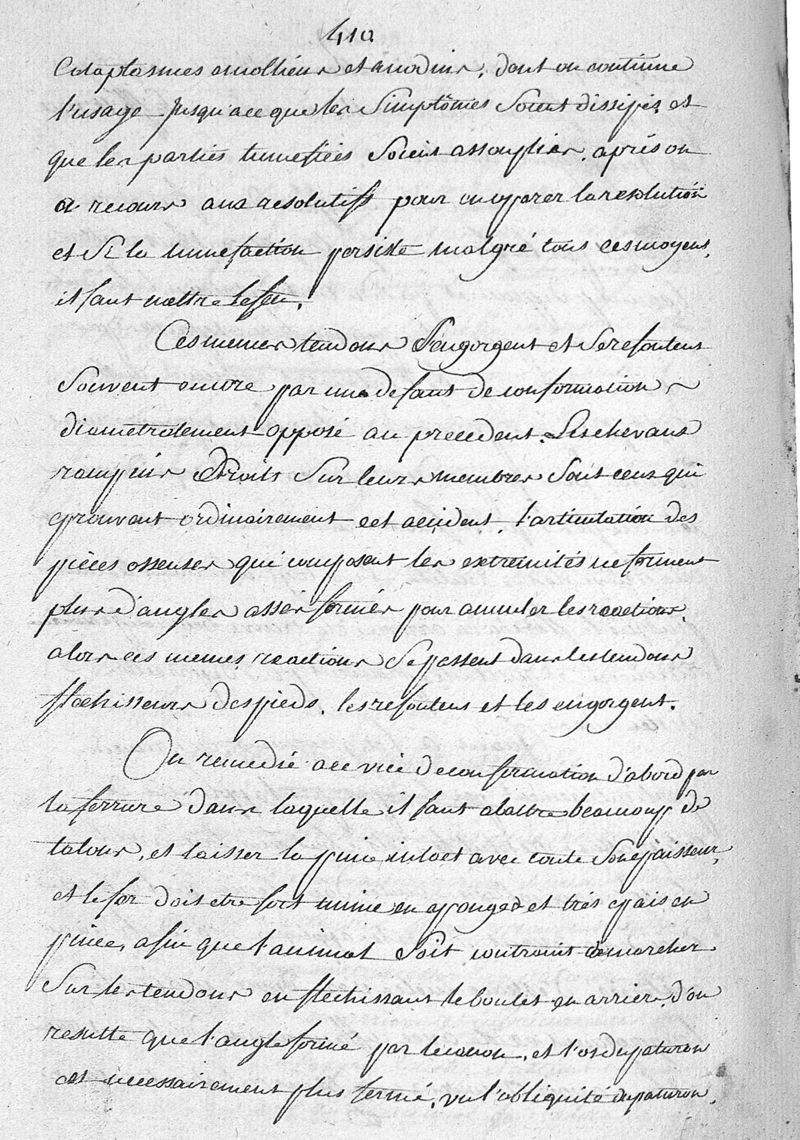 410
Cataplasmes emolliens et anodins, dont on continue
l'usage jusqu'a ce que les Simptômes Soient dissipés et
que les parties tumefiées Soient assouplies, après on
a recours aux resolutifs pour en operer la resolution
et Si la tumefaction persiste malgré tous ces moyens,
il faut mettre le feu.
Ces memes tendons S'engorgent et Se refoulent
Souvent encore par un defaut de conformation ~
diametralement opposé au precedent. Les chevaux
rampins Droits Sur leurs membres Sont ceux qui
eprouvent ordinairement cet accident, l'articulation des
pièces osseuses qui composent les extremités ne forment
plus d'angles assés fermés pour annuler les reactions,
alors ces memes reactions Se passent dans les tendons
flechisseurs des pieds, les refoulent et les engorgent.
On remedie a ce vice de conformation d'abord par
la ferrure dans laquelle il faut abattre beaucoup de
talons, et laisser la pince intact avec toute Son epaisseur,
et le fer doit etre fort mince en eponges et très epais en
pince, afin que l'animal Soit contraint a marcher
Sur les tendons en flechissant le boulet en arrier, d'ou
resulte que l'angle formé par le canon, et l'os du paturon
est necessairement plus fermé, vu l'obliquité du paturon,